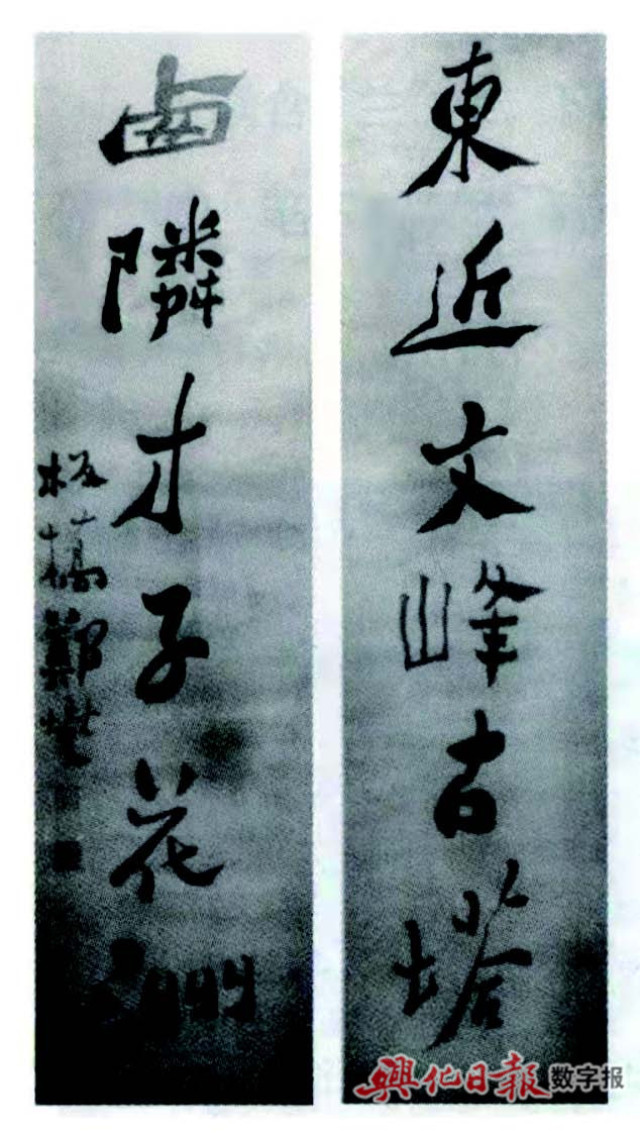 東近文峰古塔
西隣才子花洲
板橋鄭燮
興化日報 数字报